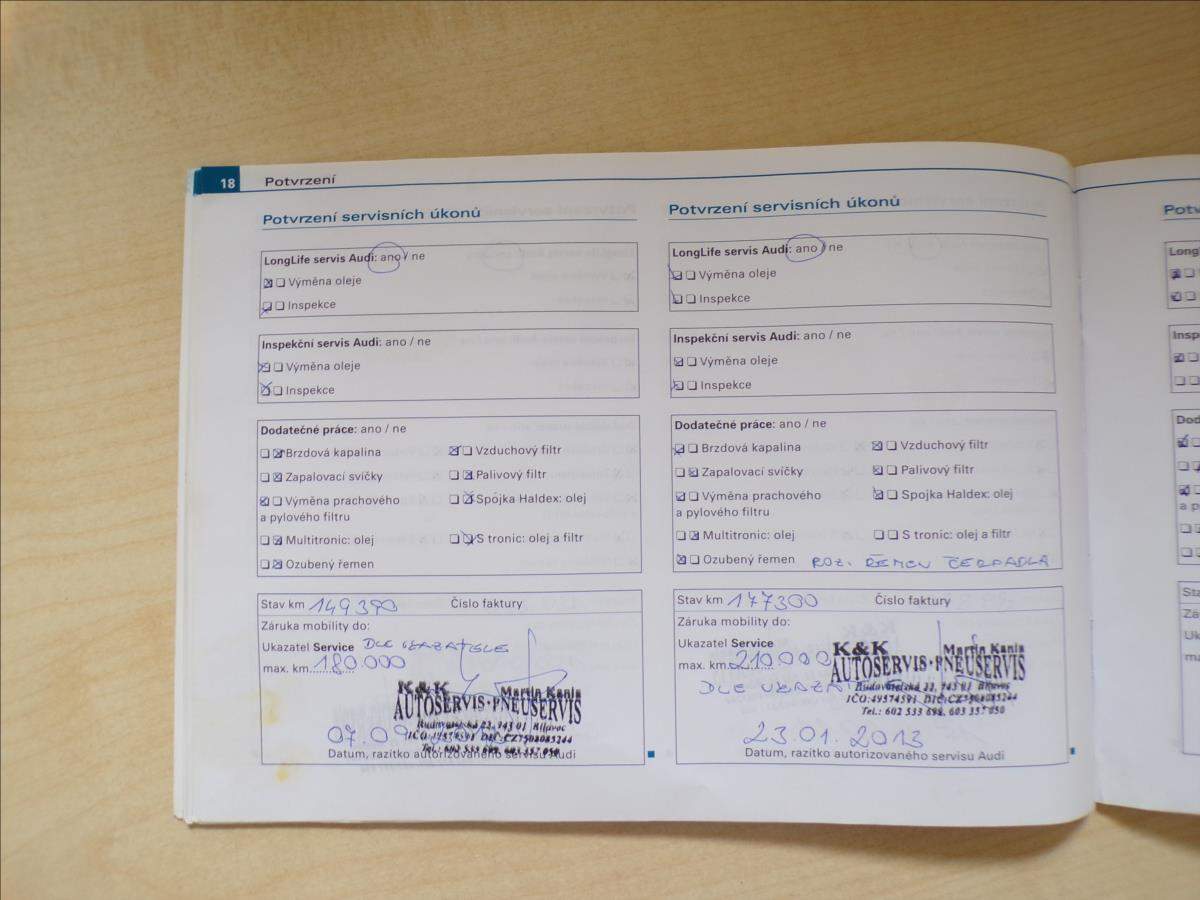 18 Potvrzení
Potvrzení servisních úkonů
LongLife servis Audi: ano / ne
Výměna oleje
Inspekce
Inspekční servis Audi: ano / ne
Výměna oleje
Inspekce
Dodatečné práce: ano / ne
Brzdová kapalina Vzduchový filtr
Zapalovací svíčky Palivový filtr
Výměna prachového Spojka Haldex: olej
a pylového filtru
Multitronic: olej S tronic: olej a filtr
Ozubený řemen
Stav km 149390 Číslo faktury
Záruka mobility do:
Ukazatel Service DLE UKAZATELE
max. km 180.000
K&K Martin Kania
AUTOSERVIS·PNEUSERVIS
07.09
Datum, razítko autorizovaného servisu Audi
Potvrzení servisních úkonů
LongLife servis Audi: ano / ne
Výměna oleje
Inspekce
Inspekční servis Audi: ano / ne
Výměna oleje
Inspekce
Dodatečné práce: ano / ne
Brzdová kapalina Vzduchový filtr
Zapalovací svíčky Palivový filtr
Výměna prachového Spojka Haldex: olej
a pylového filtru
Multitronic: olej S tronic: olej a filtr
Ozubený řemen ROZ. ŘEMEN ČERPADLA
Stav km 177300 Číslo faktury
Záruka mobility do:
Ukazatel Service
max. km 210000
DLE
K&K Martin Kania
AUTOSERVIS·PNEUSERVIS
22, 743 01 Bílovec
IČO:49574591
Tel.: 602 533 698, 603 357 050
23.01.2013
Datum, razítko autorizovaného servisu Audi